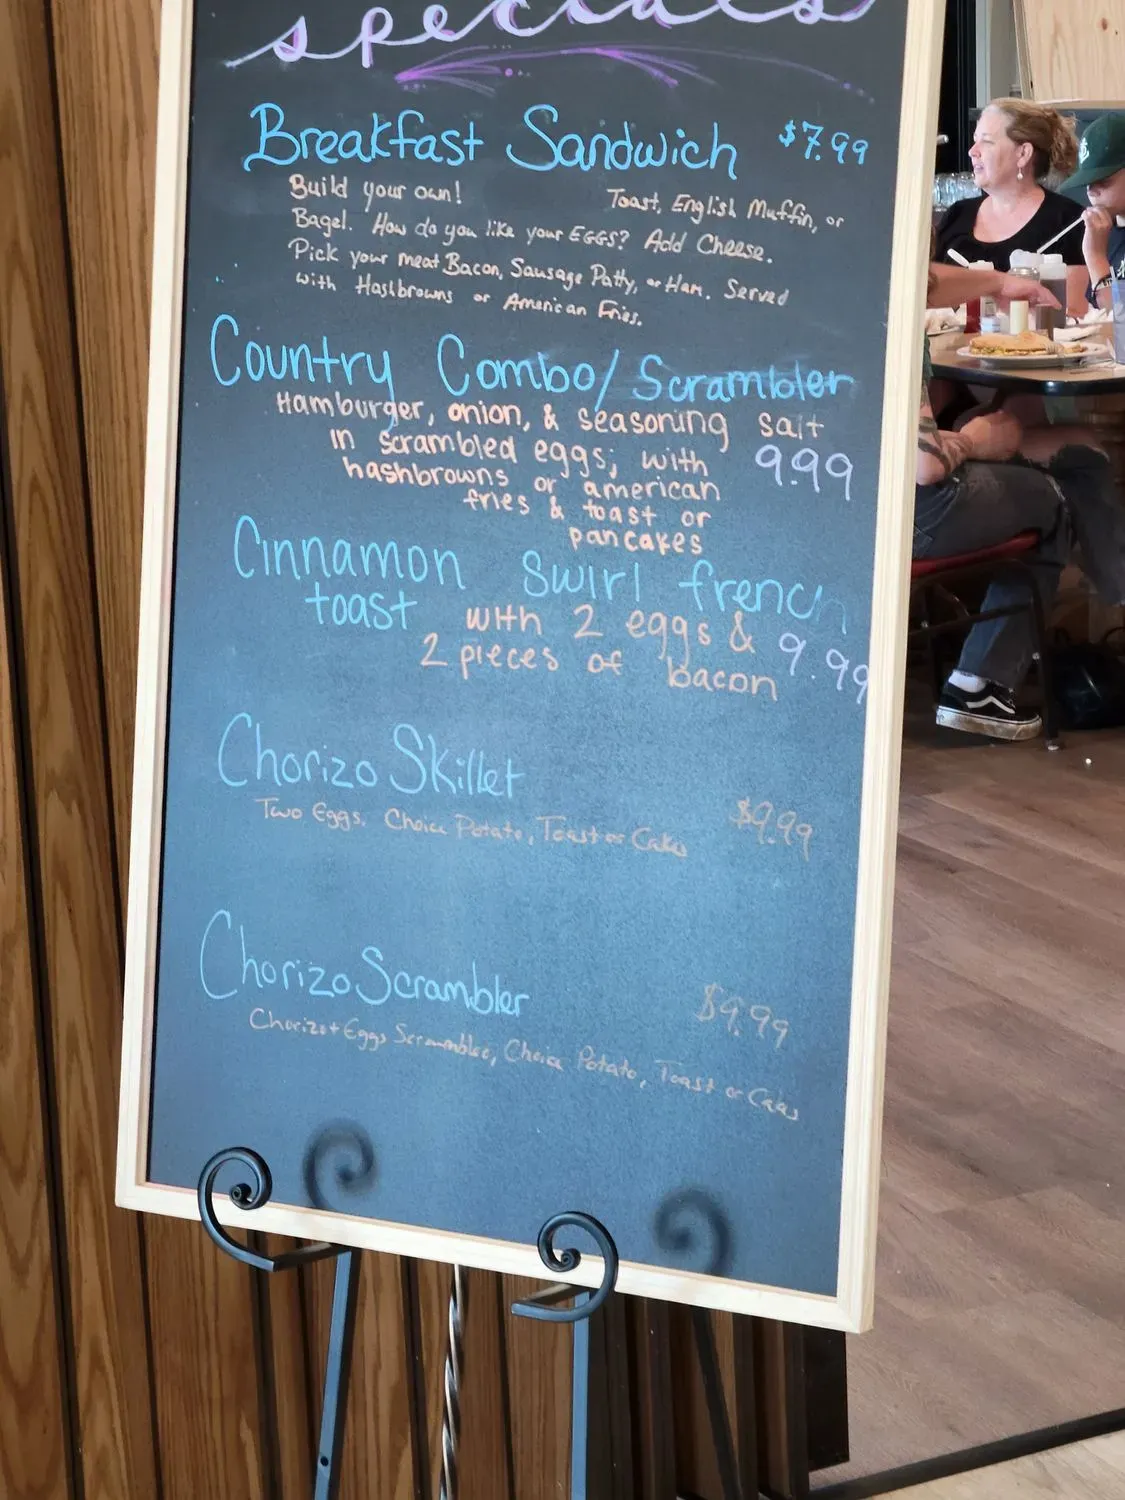 specials
Breakfast Sandwich $7.99
Build your own! Toast, English Muffin, or
Bagel. How do you like your EGGS? Add Cheese.
Pick your meat Bacon, Sausage Patty, or Ham. Served
with Hashbrowns or American Fries.
Country Combo/Scrambler
Hamburger, onion, & seasoning salt
in scrambled eggs; with 9.99
hashbrowns or american
fries & toast or
pancakes
Cinnamon Swirl french
toast with 2 eggs & 9.99
2 pieces of bacon
Chorizo Skillet
$9.99
Two Eggs, Choice Potato, Toast or Cakes
Chorizo Scrambler $9.99
Chorizo + Eggs Scrambled, Choice Potato, Toast or Cakes